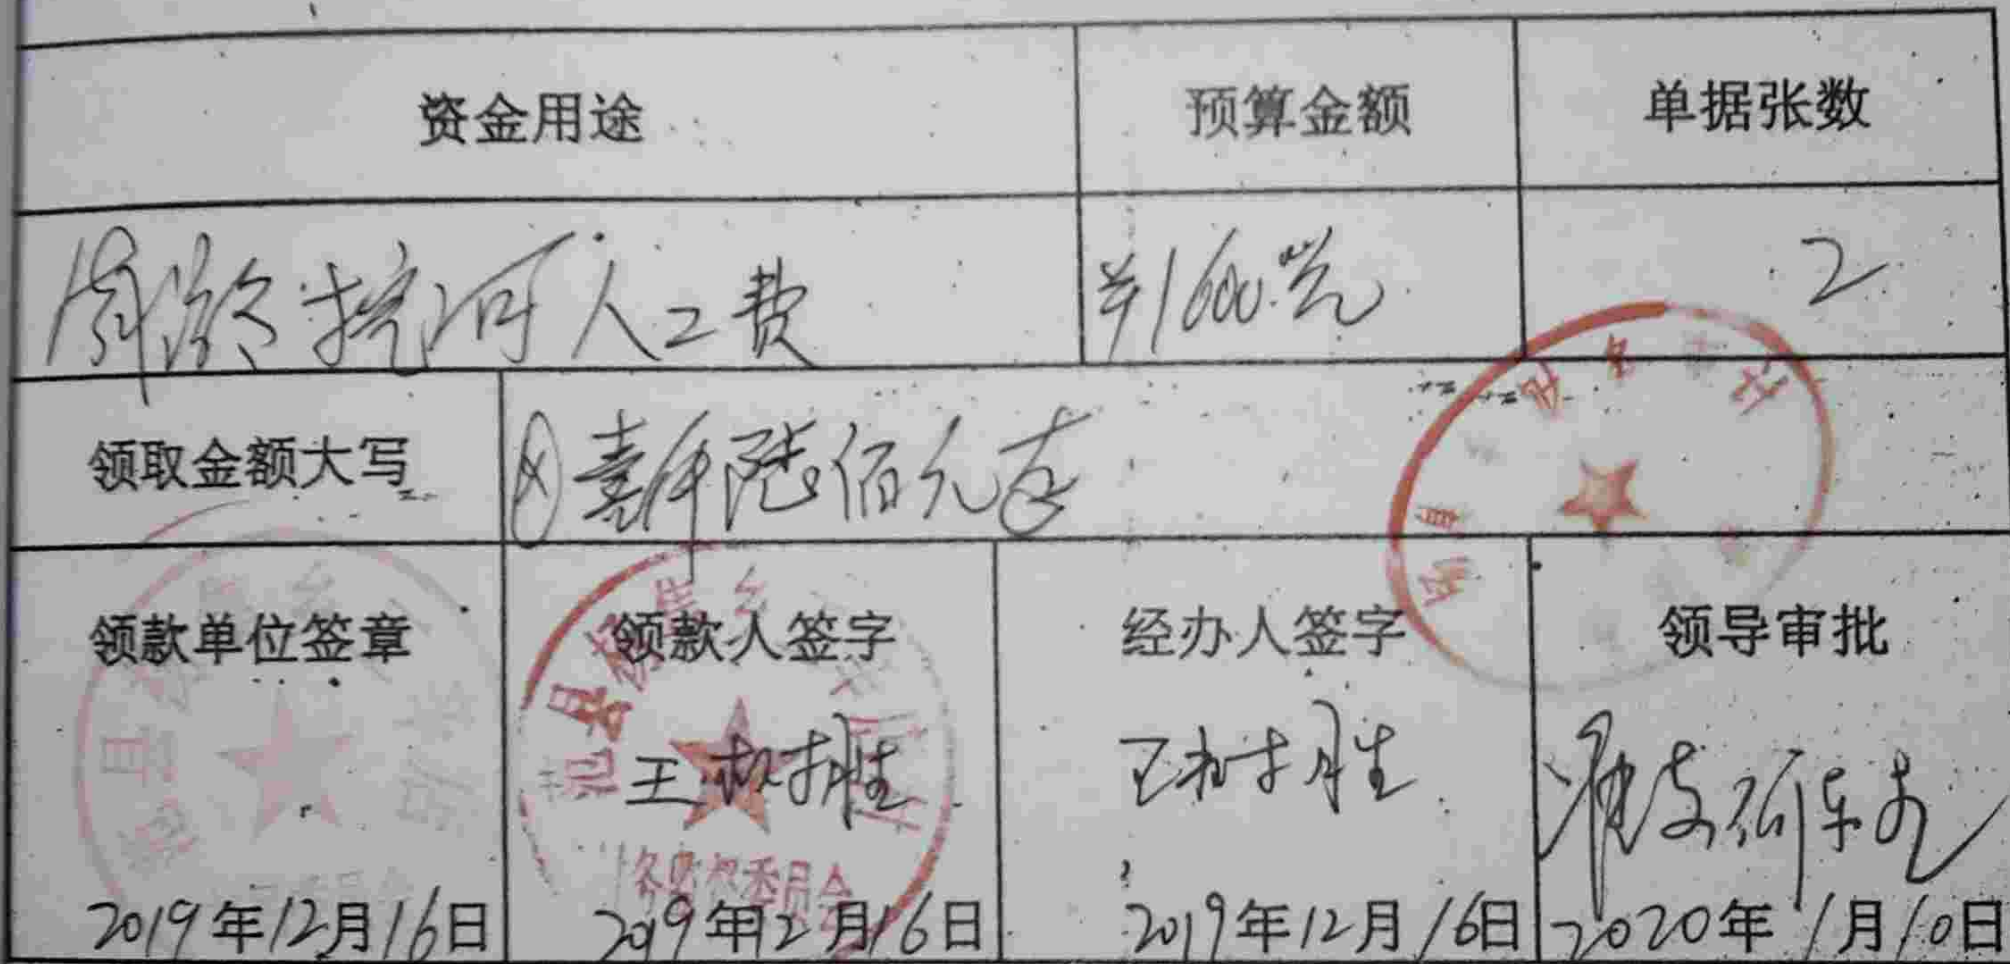 资金用途 预算金额 单据张数
挖河人工费 ¥1600.元 2
领取金额大写 ⊗壹仟陆佰元整
领款单位签章 领款人签字 经办人签字 领导审批
王树胜 王树胜 准支
2019年12月16日 2019年12月16日 2019年12月16日 2020年1月10日